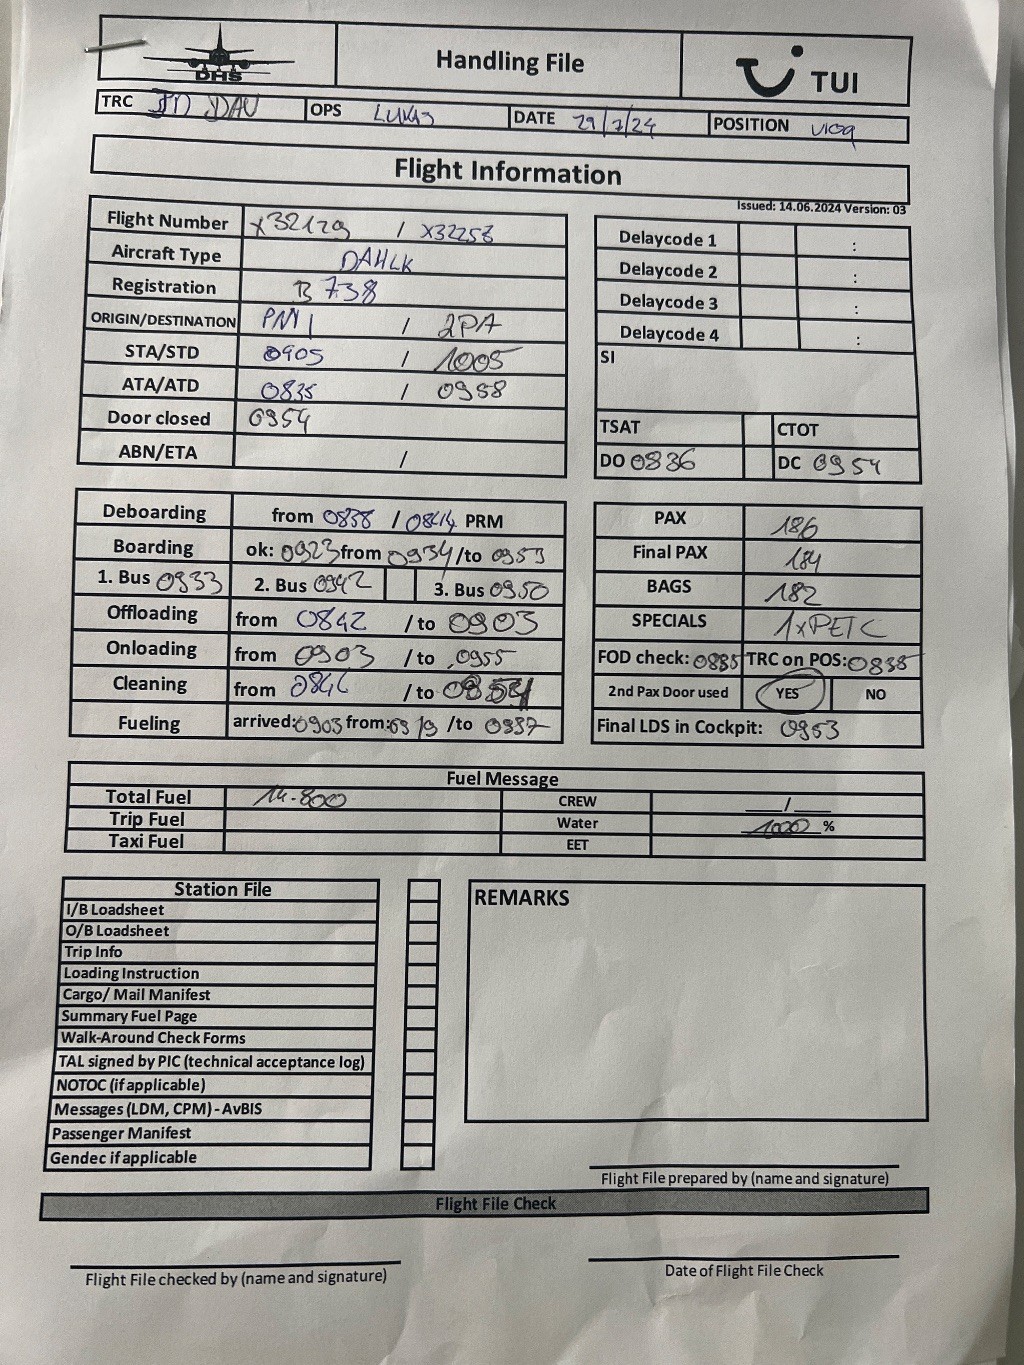 DHS
Handling File
TUI
TRC DAV OPS LUKAS DATE 29/7/24 POSITION V109
Flight Information
Issued: 14.06.2024 Version: 03
Flight Number X32129 / X32258
Aircraft Type DAHLK
Registration B738
ORIGIN/DESTINATION PMI / 2PA
STA/STD 0905 / 1005
ATA/ATD 0835 / 0958
Door closed 0954
ABN/ETA /
Delaycode 1 :
Delaycode 2 :
Delaycode 3 :
Delaycode 4 :
SI
TSAT CTOT
DO 0836 DC 0954
Deboarding from 0838 / 0844 PRM
Boarding ok: 0923 from 0934 /to 0953
1. Bus 0933 2. Bus 0942 3. Bus 0950
Offloading from 0842 /to 0903
Onloading from 0903 /to 0955
Cleaning from 0846 /to
Fueling arrived: 0903 from: 0919 /to 0937
PAX 186
Final PAX 184
BAGS 182
SPECIALS 1xPETC
FOD check: TRC on POS:
2nd Pax Door used YES NO
Final LDS in Cockpit: 0953
Fuel Message
Total Fuel 14.800 CREW __/__
Trip Fuel Water %
Taxi Fuel EET
Station File
I/B Loadsheet
O/B Loadsheet
Trip Info
Loading Instruction
Cargo/ Mail Manifest
Summary Fuel Page
Walk-Around Check Forms
TAL signed by PIC (technical acceptance log)
NOTOC (if applicable)
Messages (LDM, CPM) - AvBIS
Passenger Manifest
Gendec if applicable
REMARKS
Flight File prepared by (name and signature)
Flight File Check
Flight File checked by (name and signature)
Date of Flight File Check